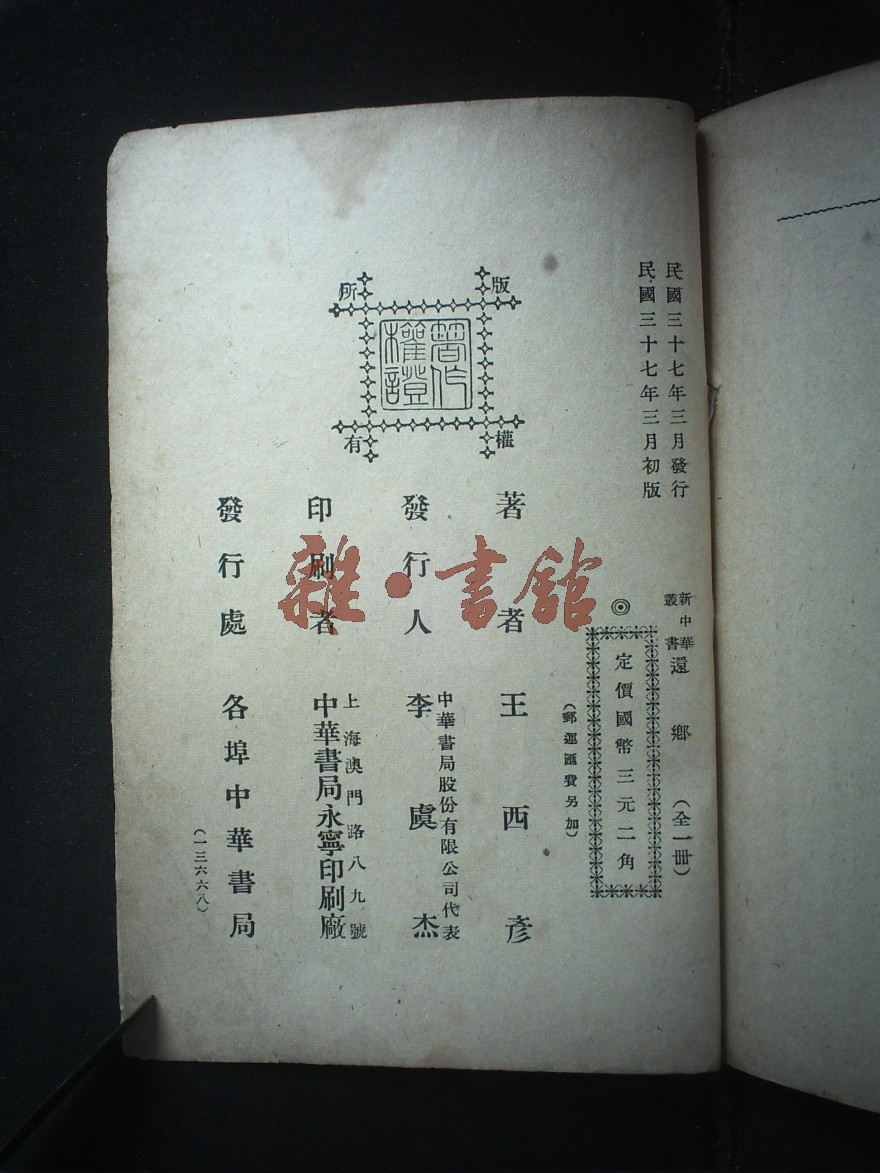 民國三十七年三月發行
民國三十七年三月初版
新中華叢書 還鄉 (全一冊)
◎ 定價國幣三元二角
(郵運匯費另加)
版權所有
著作權證
著者 王西彥
發行人 中華書局股份有限公司代表 李虞杰
印刷者 上海澳門路八九號 中華書局永寧印刷廠
發行處 各埠中華書局
(一三六六八)
雜·書館